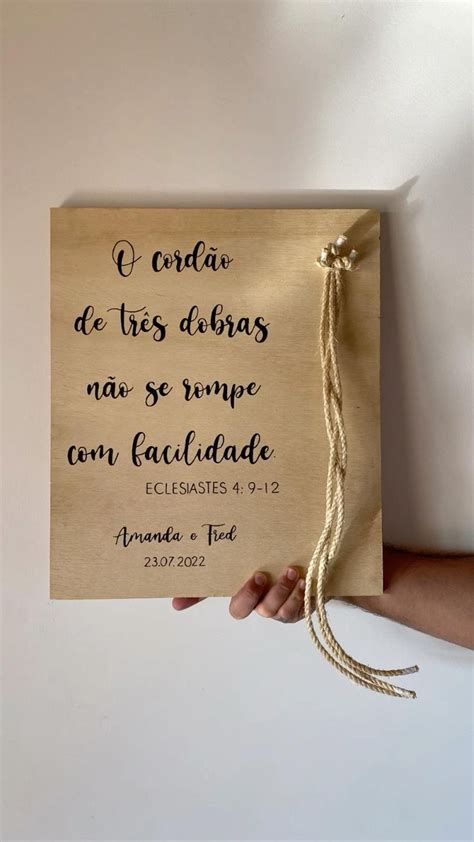 O cordão
de três dobras
não se rompe
com facilidade.
ECLESIASTES 4: 9-12
Amanda e Fred
23.07.2022